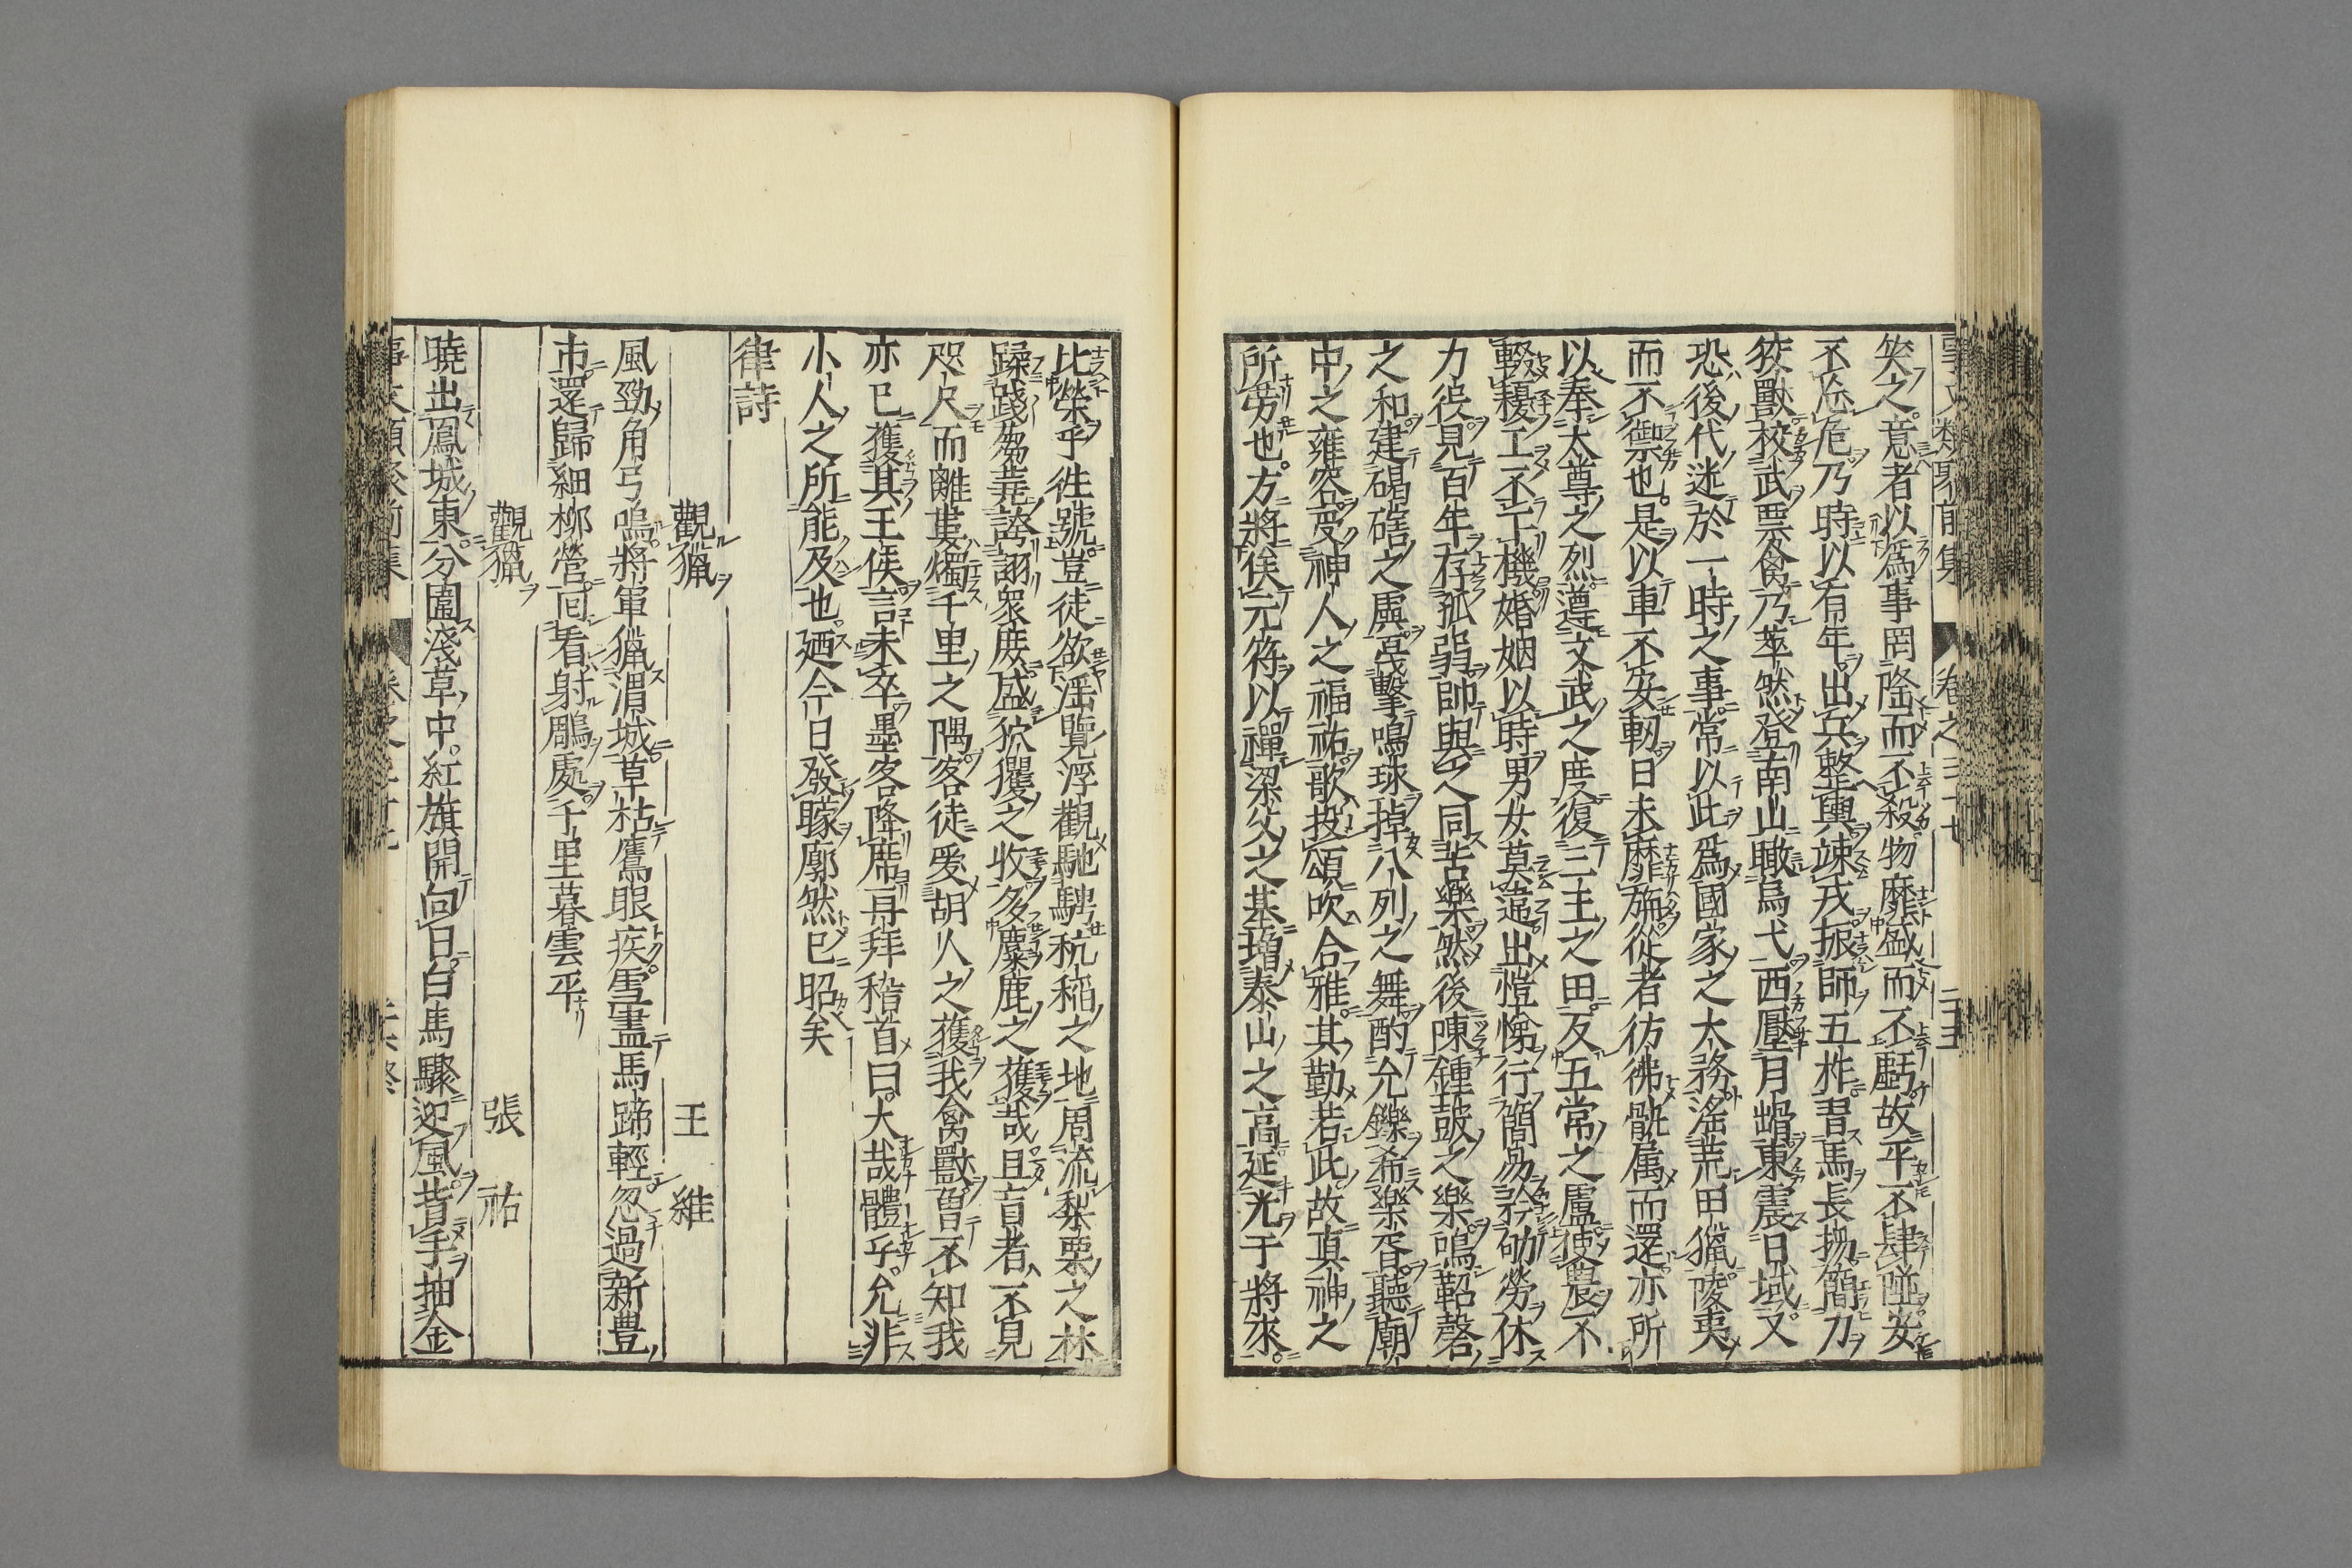 事文類聚前集 卷之三十七
笑之意者以爲事罔隆而不殺物靡盛而不虧故平不肆險安
不忘危乃時以有年出兵整輿竦戎振師五柞習馬長楊簡力
狡獸校武票禽乃萃然登南山瞰烏弋西壓月𡿦東震日域又
恐後代迷於一時之事常以此爲國家之大務淫荒田獵陵夷
而不禦也是以車不安軔日未靡旃從者彷彿骫属而還亦所
以奉太尊之烈遵文武之度復三王之田反五帝之虞使農不
輟耰工不下機婚姻以時男女莫違出愷悌行簡易矜劬勞休
力役見百年存孤弱帥與之同苦樂然後陳鍾鼓之樂鳴鞀磬
之和建碣磍之虡戞擊鳴球掉八列之舞酌允鑠肴樂胥聽廟
中之雍容受神人之福祐歌投頌吹合雅其勤若此故真神之
所勞也方將俟元符以禪梁父之基增泰山之高延光于將來
比榮乎徃號豈徒欲淫覽浮觀馳騁秔稲之地周流梨栗之林
蹂踐芻蕘誇詡衆庶盛狖玃之收多麋鹿之獲哉且盲者不見
咫尺而離婁燭千里之隅客徒愛胡人之獲我禽獸曽不知我
亦已獲其王侯言未卒墨客降席再拜稽首曰大哉體乎允非
小人之所能及也廼今日發矇廓然已昭矣
律詩
觀獵 王維
風勁角弓鳴將軍獵渭城草枯鷹眼疾雪盡馬蹄輕忽過新豊
市還歸細柳營回看射鵰處千里暮雲平
觀獵 張祐
曉出鳳城東分圍淺草中紅旗開向日白馬驟迎風背手抽金